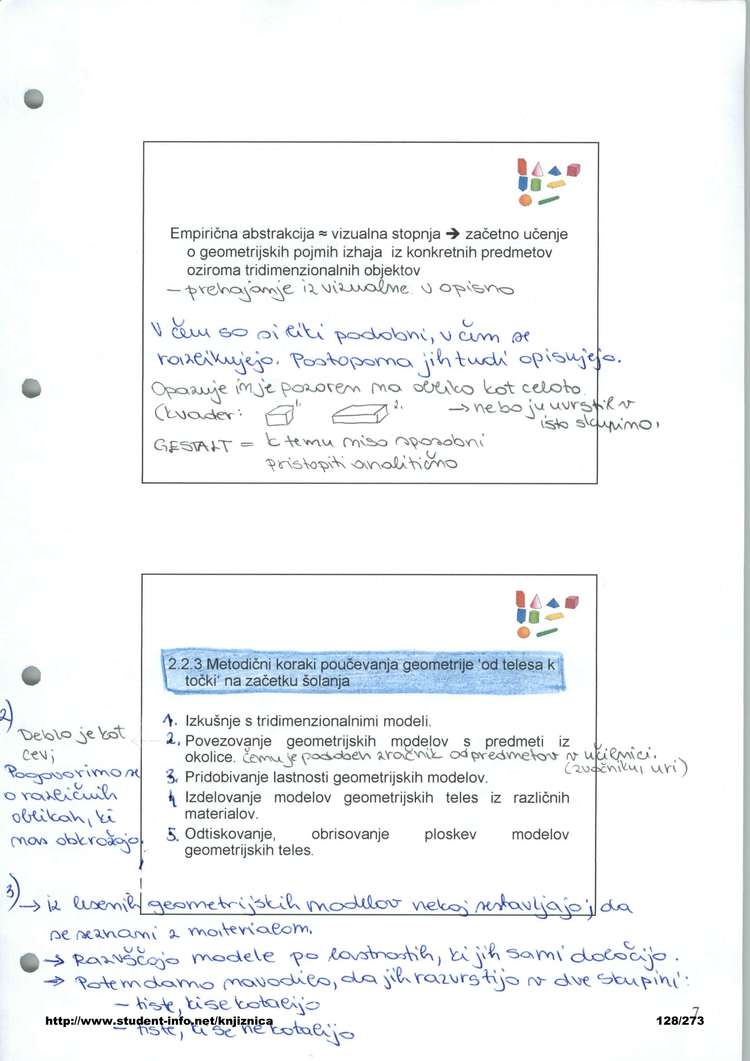 Empirična abstrakcija ≈ vizualna stopnja ➔ začetno učenje
o geometrijskih pojmih izhaja iz konkretnih predmetov
oziroma tridimenzionalnih objektov
- prehajanje iz vizualne v opisno
V čem so si liki podobni, v čim se
razlikujejo. Postopoma jih tudi opisujejo.
Opazuje in je pozoren na obliko kot celoto.
(kvader: 1. 2. → ne bo ju uvrstil v
isto skupino,
GESTALT = k temu niso sposobni
pristopiti analitično
2.2.3 Metodični koraki poučevanja geometrije 'od telesa k
točki' na začetku šolanja
1. Izkušnje s tridimenzionalnimi modeli.
2. Povezovanje geometrijskih modelov s predmeti iz
okolice. čemu je podoben zračnik od predmetov v učilnici.
(zvočniku, uri)
3. Pridobivanje lastnosti geometrijskih modelov.
4 Izdelovanje modelov geometrijskih teles iz različnih
materialov.
5. Odtiskovanje, obrisovanje ploskev modelov
geometrijskih teles.
2)
Deblo je kot
cev;
Pogovorimo se
o različnih
oblikah, ki
nas obkrožajo,
3)
→ iz lesenih geometrijskih modelov nekaj sestavljajo, da
se seznani z materialom.
→ Razvščajo modele po lastnostih, ki jih sami določijo.
→ Potem damo navodilo, da jih razvrstijo v dve skupini:
- tiste, ki se kotalijo
- tiste, ki se ne kotalijo
http://www.student-info.net/knjiznica
128/273